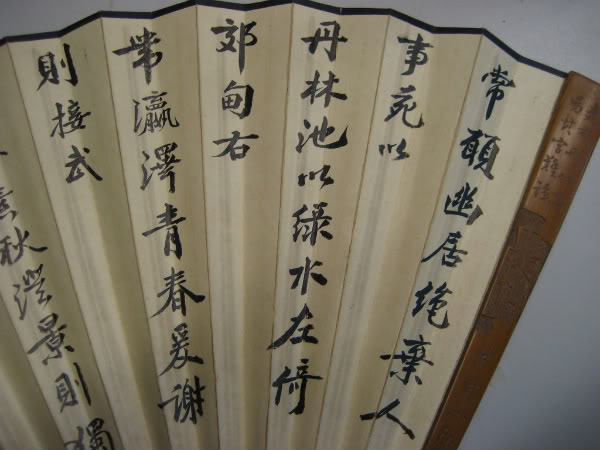 常願幽居絶棄人
事苑以
丹林池以绿水左倚
郊甸右
帶瀛澤青春爰謝
則接武
秋澄景則獨